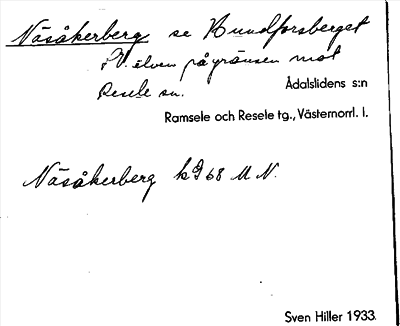 Näsåkerberg se Kundforsberget
V. älven på gränsen mot
Resele sn.
Ådalslidens s:n
Ramsele och Resele tg., Västernorrl. l.
Näsåkerberg k 68 N.
Sven Hiller 1933.